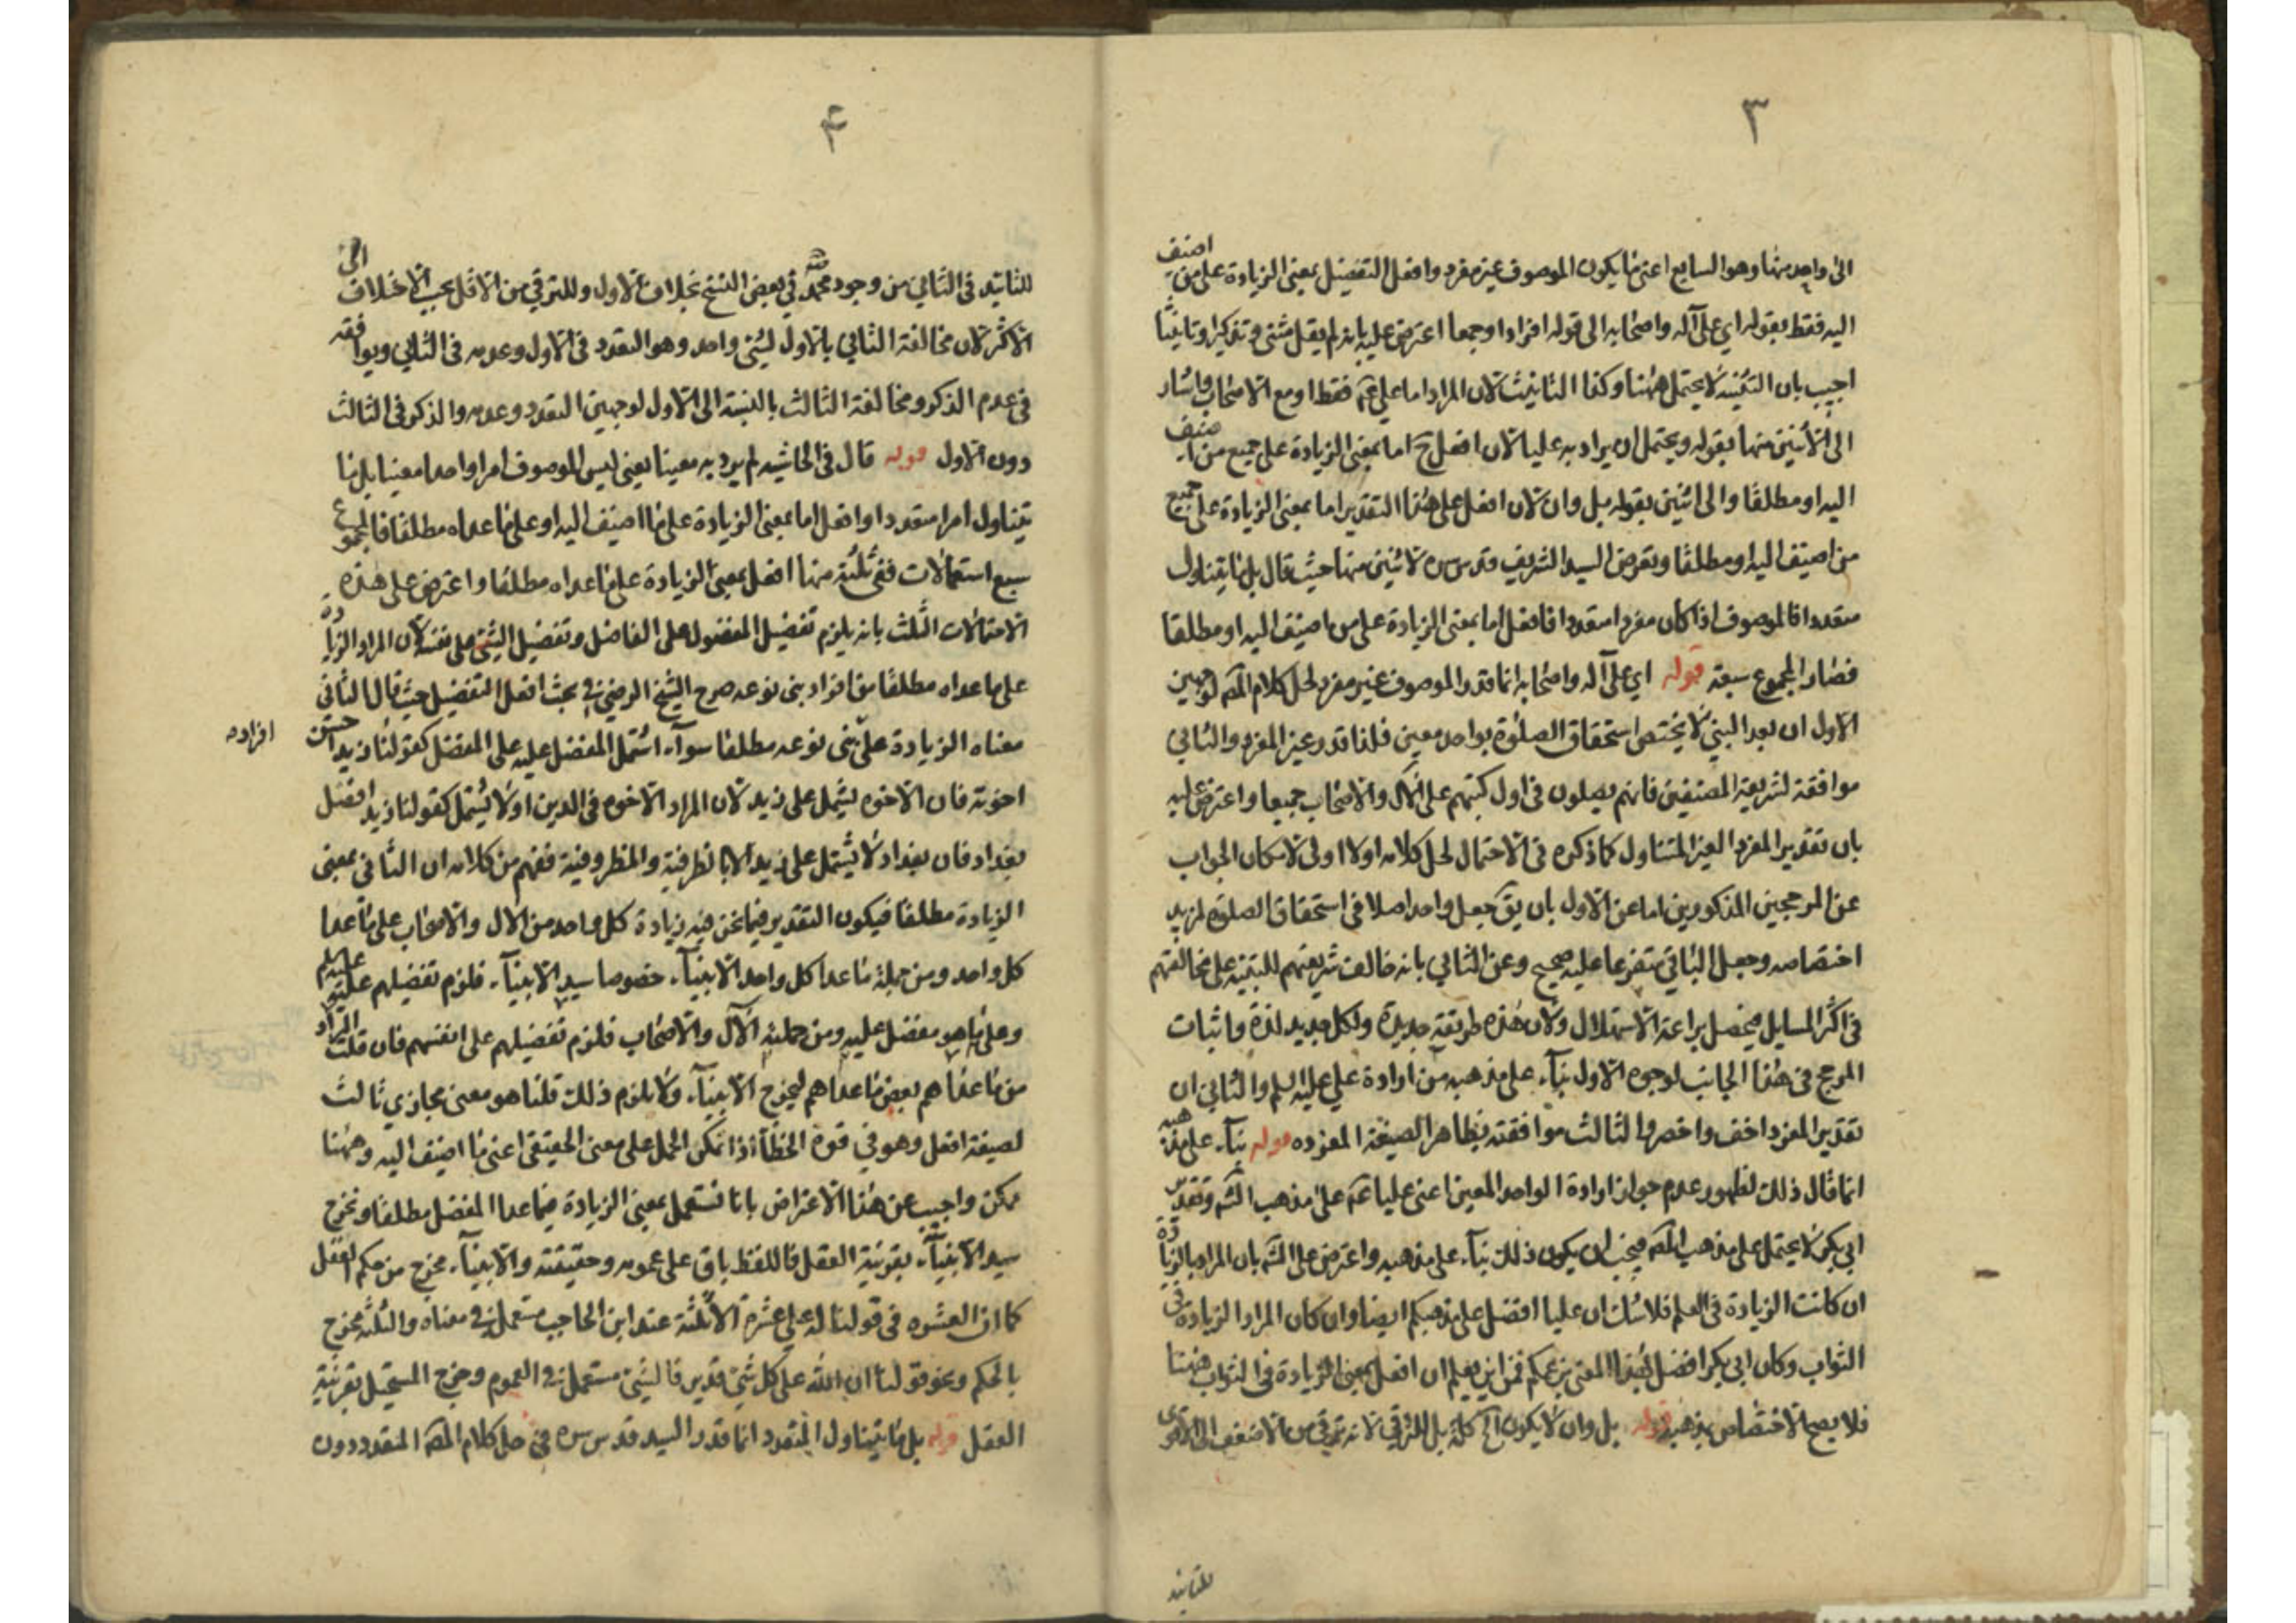 ٣
الى واحد منها وهو السابع اعنى ما يكون الموصوف غير مفرد وافعل التفضيل بمعنى الزيادة على من اضيف
اليه فقط بقوله اي على آله واصحابه الى قوله افرادا وجمعا اعترض عليه بانه لم يقل مثنى وتذكيرا وتانيثا
اجيب بان التثنية لا يحتمل ههنا وكذا التانيث لان المراد اما علي عم فقط او مع الاصحاب واشار
الى الاثنين منها بقوله ويحتمل ان يراد به عليا لان افعل ح اما بمعنى الزيادة على جميع من اضيف
اليه او مطلقا والى اثنين بقوله بل وان لان افعل على هذا التقدير اما بمعنى الزيادة على جميع
من اضيف اليه او مطلقا وتعرض السيد الشريف قدس سره لاثنين منها حيث قال بل ما يتناول
متعددا فالموصوف اذا كان مفردا متعددا فافعل اما بمعنى الزيادة على من اضيف اليه او مطلقا
فصار المجموع سبعة قوله اي على آله واصحابه انما قدر الموصوف غير مفرد لحل كلام المص لوجهين
الاول ان بعد النبي لا يختص استحقاق الصلوة بواحد معين فلذا قدر غير المفرد والثاني
موافقة لشريعة المصنفين فانهم يصلون في اول كتبهم على الآل والاصحاب جميعا واعترض عليه
بان تقدير المفرد الغير المتناول كما ذكره في الاحتمال لحل كلامه اولا اولى لامكان الجواب
عن المرجحين المذكورين اما عن الاول بان يق جعل واحد اصلا في استحقاق الصلوة لمزيد
اختصاصه وجعل الباقي متفرعا عليه صحيح وعن الثاني بانه خالف شريعتهم للتنبيه على مخالفتهم
في اكثر المسايل فيحصل براعة الاستهلال ولان هذه طريقة جديدة ولكل جديد لذة واثبات
المرجح في هذا الجانب لوجوه الاول بناء على مذهبه من ارادة علي عليه السلم والثاني ان
تقدير المفرد اخف واخصر والثالث موافقته بظاهر الصيغة المفرده قوله بناء على مذهبه
انما قال ذلك لظهور عدم جواز ارادة الواحد المعين اعنى عليا عم على مذهب الش وتقدير
ابي بكر لا يحتمل على مذهب المص فيجب ان يكون ذلك بناء على مذهبه واعترض على الش بان المراد بالزيادة
ان كانت الزيادة في العلم فلا شك ان عليا افضل على مذهبكم ايضا وان كان المراد الزيادة في
الثواب وكان ابي بكر افضل بهذا المعنى بزعمكم فمن اين يعلم ان افعل بمعنى الزيادة في الثواب ههنا
فلا يصح الاختصاص بمذهبه قوله بل وان لا يكون الخ كلمة بل للترقي لانه ترقى من الاضعف الى الاقوى
للتانيد
۴
للتانيد في الثاني من وجود محمد في بعض النسخ بخلاف الاول وللترقي من الاقل بحسب الاختلاف الى
الاكثر لان مخالفة الثاني بالاول لشئ واحد وهو التعدد في الاول وعدمه في الثاني ويوافقه
في عدم الذكر ومخالفة الثالث بالنسبة الى الاول لوجهين التعدد وعدمه والذكر في الثالث
دون الاول قوله قال في الحاشيه لم يرد به معينا يعنى ليس الموصوف امرا واحدا معينا بل ما
يتناول امرا متعددا وافعل اما بمعنى الزيادة على ما اضيف اليه او على ما عداه مطلقا فالمجموع
سبع استعمالات ففي ثلثة منها افعل بمعنى الزيادة على ما عداه مطلقا واعترض على هذه
الاحتمالات الثلث بانه يلزم تفضيل المفضول على الفاضل وتفضيل الشئ على نفسه لان المراد الزيادة
على ما عداه مطلقا من افراد بنى نوعه صرح الشيخ الرضي في بحث افعل التفضيل حيث قال الثاني
معناه الزيادة على بنى نوعه مطلقا سوآء اشتمل المفضل عليه على المفضل كقولنا زيد احسن
افراده
اخوته فان الاخوه يشمل على زيد لان المراد الاخوه في الدين اولا يشتمل كقولنا زيد افضل
بغداد فان بغداد لا يشتمل على زيد الا بالظرفية والمظروفية ففهم من كلامه ان الثاني بمعنى
الزيادة مطلقا فيكون التقدير فيما نحن فيه زيادة كل واحد من الال والاصحاب على ما عدا
كل واحد ومن جملة ما عدا كل واحد الانبيآء خصوصا سيد الانبيآء فلزم تفضيلهم عليهم
وعلى ما هو مفضل عليه ومن جملته الآل والاصحاب فلزم تفضيلهم على انفسهم فان قلت المراد
من ما عداهم بعض ما عداهم ليخرج الانبيآء ولا يلزم ذلك قلنا هو معنى مجازي ثالث
لصيغة افعل وهو في قوة الخطأ اذا تمكن الحمل على معنى الحقيقى اعنى ما اضيف اليه وههنا
يمكن واجيب عن هذا الاعتراض بانا نستعمل بمعنى الزيادة فيما عدا المفضل مطلقا ونخرج
سيد الانبيآء بقرينة العقل فاللفظ باق على عمومه وحقيقته والانبيآء مخرج من حكم العقل
كما ان العشره في قولنا له علي عشرة الا ثلثة عند ابن الحاجب مستعمل في معناه والثلثه مخرج
بالحكم ونحو قولنا ان الله على كل شئ قدير فالشئ مستعمل في العموم وخرج المستحيل بقرينة
العقل قوله بل ما يتناول المتعدد انما قدر السيد قدس سره في حل كلام المص المتعدد دون